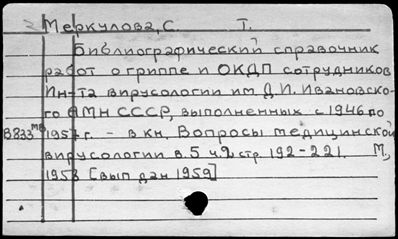 Меркулова, С. Т.
Библиографический справочник
работ о гриппе и ОКДП сотрудников
Ин-та вирусологии им. Д. И. Ивановско-
го АМН СССР, выполненных с 1946 по
В833мв 1957 г. - в кн. Вопросы медицинской
вирусологии в. 5 ч. 2 стр. 192-221. М.,
1958 [вып дан 1959]